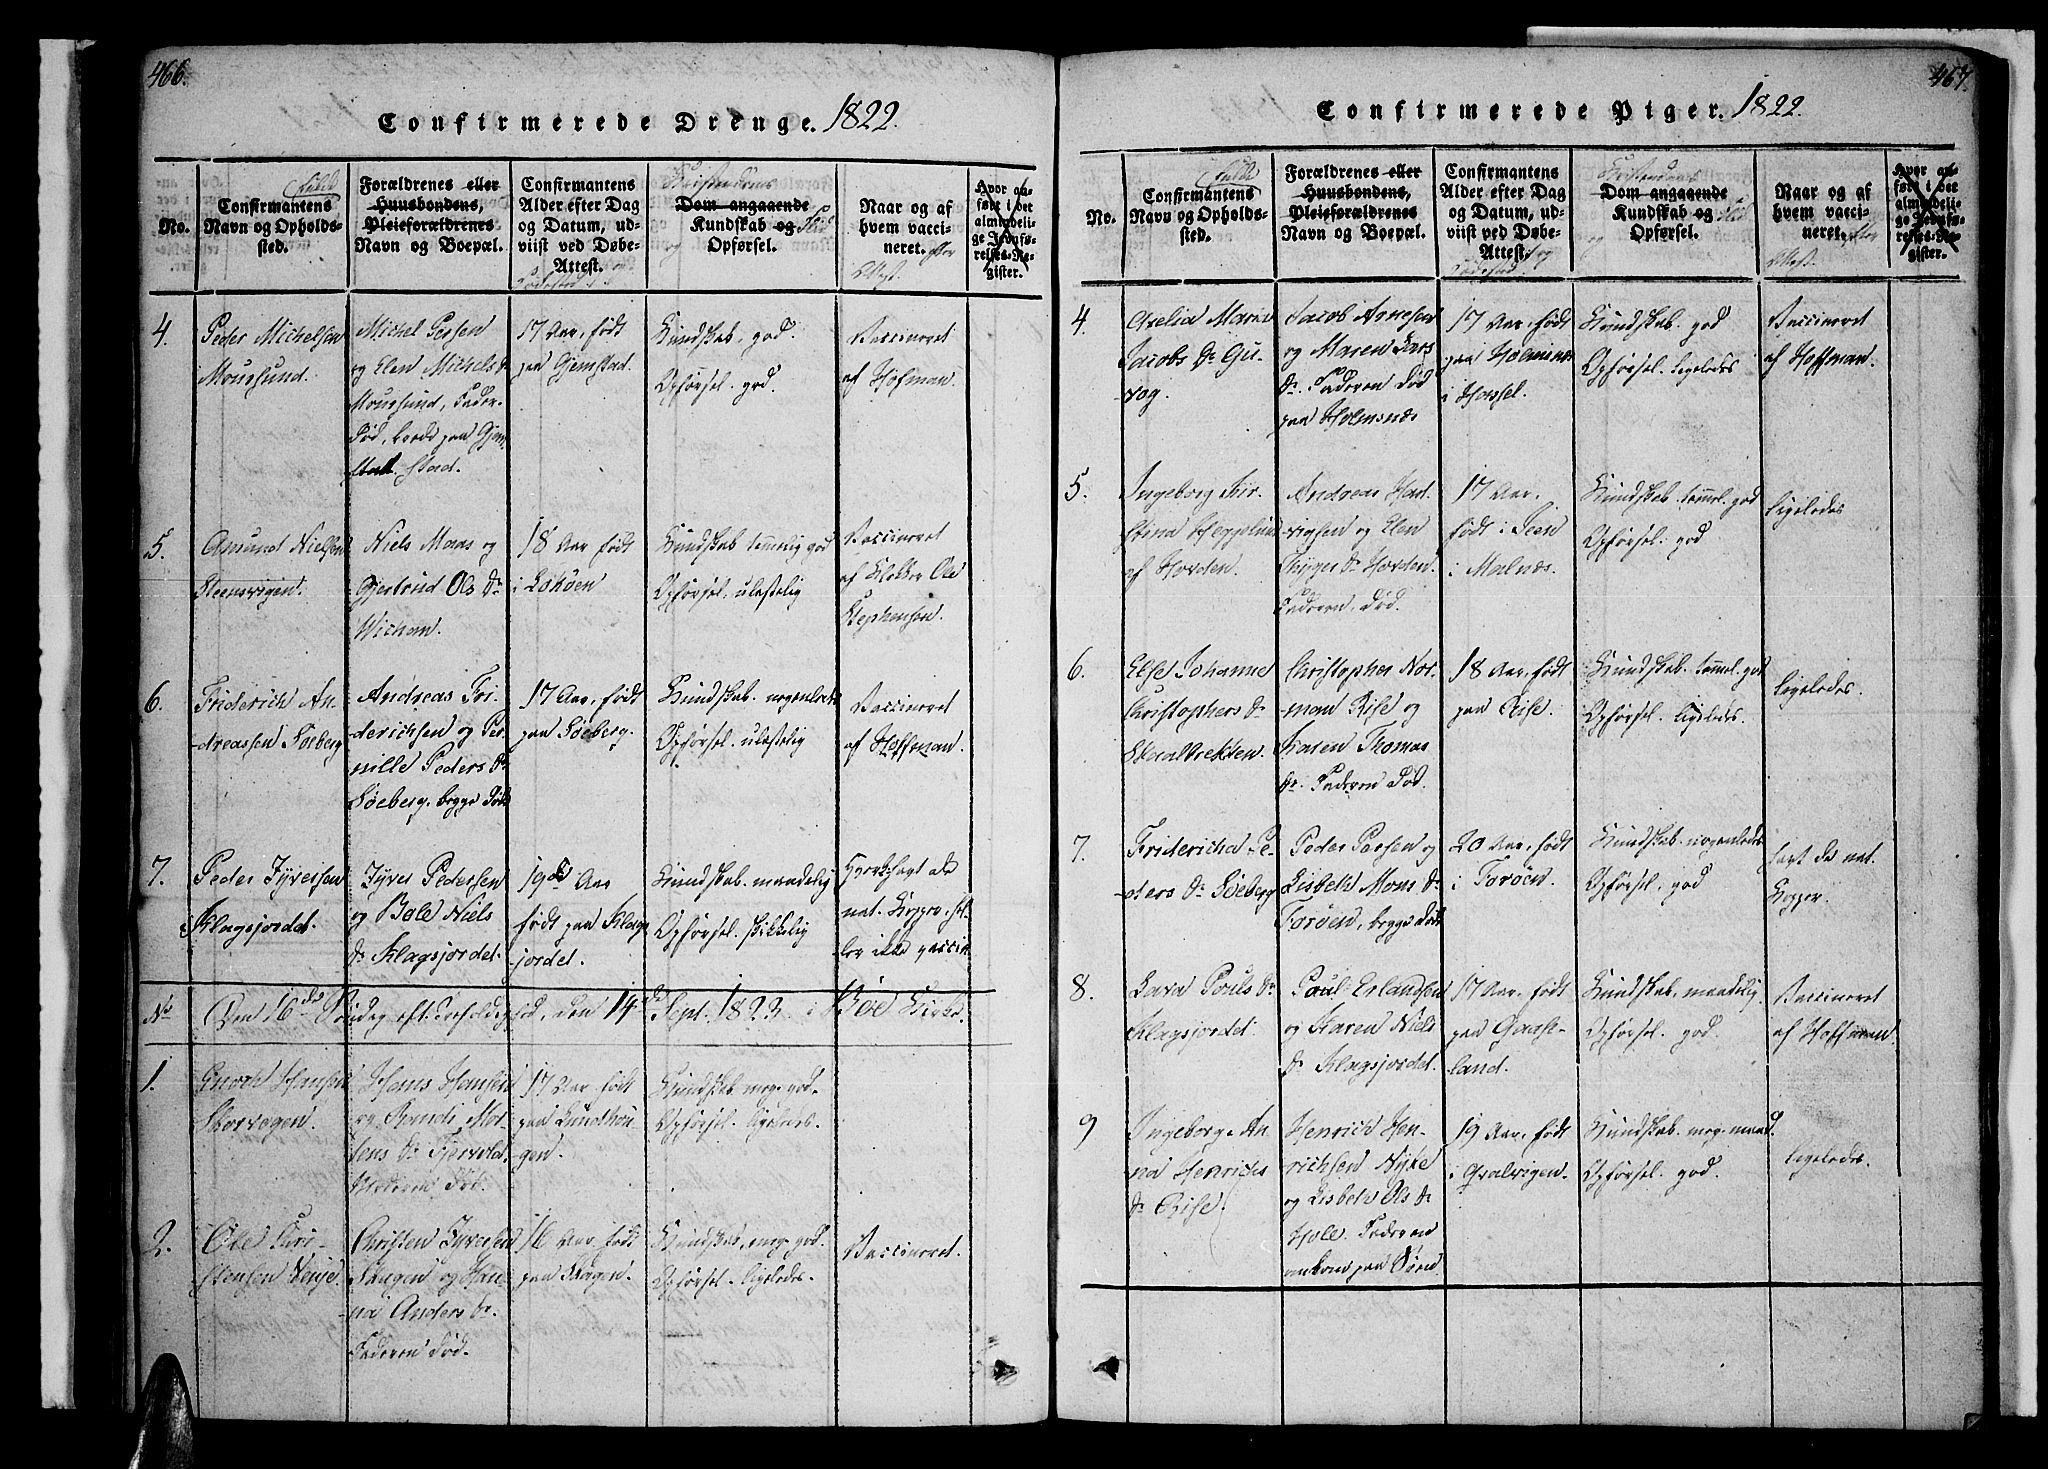 466.
Confirmerede Drenge. 1822.
No.
Confirmantens
Navn og Opholds-
sted.
Forældrenes eller
Huusbondens,
Pleieforældrenes
Navn og Boepæl.
Confirmantens
Alder efter Dag
og Datum, ud-
viist ved Døbe-
Attest.
Christendoms
Dom angaaende
Kundskab og
Opførsel.
Naar og af
hvem vacci-
neret.
Hvor an-
ført i det
almindeli-
ge Jevnfø-
relses-Re-
gister.
4.
Peder Michelsen
Mousund.
Michel Persen
og Elen Michels Dr
Mousund, Fader.
Død, boede paa Gjem-
stad.
17 Aar, født
paa Gjemstad.
Kundskab. god.
Opførsel. god.
Vaccineret
af Hofman.
5.
Amund Nielsen
Steensvigen.
Niels Maas og
Gjertrud Ols Dr
Wichan.
18 Aar født
i Lohöen
Kundskab temmelig god
Opførsel. ulastelig
Vaccineret
af Klokker Ole
Stephensen.
6.
Friderich An-
dreassen Söeberg
Andreas Fri-
derichsen og Per-
nille Peders Dr
Söeberg. begge Døde
17 Aar, født
paa Söeberg.
Kundskab. nogenledes
Opførsel. ulastelig
Vaccineret
af Hoffman.
7.
Peder Jyversen
Klagsjordet.
Jyver Pedersen
og Bole Niels
Dr Klagsjordet.
19 Aar
født paa Klags-
jordet.
Kundskab. maadelig
Opførsel. skikkelig
nat. Kopper
ler ikke vaccin
No
Den 16de Söndag eft. Trefoldighed, den 14de Sept. 1822. i Böe Kirke.
1.
Enoch Hansen
Storvogen.
Hans Hansen
og Randi Mor-
tens Dr Fjervold.
Moderen Død.
17 Aar født
paa Lundthou-
gen.
Kundskab. mog. god.
Opførsel. ligeledes.
2.
Ole Chri-
stensen Senje
Christen Jyversen
Skagen og Han-
na Anders Dr.
Faderen Død.
16 Aar, født
paa Skagen.
Kundskab, mog. god.
Opførsel. ligeledes.
Vaccineret.
467.
Confirmerede Piger. 1822.
No.
Confirmantens
Navn og Opholds-
sted.
Forældrenes eller
Huusbondens,
Pleieforældrenes
Navn og Boepæl.
Confirmantens
Alder efter Dag
og Datum, ud-
viist ved Døbe-
Attest.
Christendoms
Dom angaaende
Kundskab og
Opførsel.
Naar og af
hvem vacci-
neret.
Hvor an-
ført i det
almindeli-
ge Jevnfø-
relses-Re-
gister.
4.
Axelia Maria
Jacobs Dr Gu-
vog.
Jacob Arnesen
og Maren Lars
Dr. Faderen Død
paa Holmsnæs
17 Aar, født
paa Holmsnæs
i Hassel.
Kundskab. god
Opførsel. ligeledes
Vaccineret
af Hoffman.
5.
Ingeborg Kir-
stina Hegelund
af Horden.
Andreas Had-
vigsen og Elen
Thyges Dr Horden.
Faderen. Død.
17 Aar.
født i Teen
i Malnæs.
Kundskab. temmel. god
Opførsel. god
ligeledes
6.
Else Johanne
Christophers Dr
Skaalbrekken.
Christopher Nor-
man Rise og
Karen Thomas
Dr. Faderen Død.
18 Aar, født
paa Rise.
Kundskab. temmel. god
Opførsel. ligeledes.
ligeledes.
7.
Fridericha Pe-
ders Dr Söeberg
Peder Persen og
Lisbeth Mons Dr
Foröen, begge Døde
20 Aar, født
i Foröen.
Kundskab. nogenledes
Opførsel. god
havt de nat.
Kopper.
8.
Lava Pouls Dr
Klagsjordet.
Paul Erlandsen
og Karen Niels
Dr Klagsjordet.
17 Aar, født
paa Gaase-
land.
Kundskab, maadelig.
Opførsel. god.
Vaccineret
af Hoffman.
9
Ingeborg An-
na Henrichs
Dr Rise.
Henrich Hen-
richsen Nyke
og Lisbeth Ols Dr
Hole. Faderen
omkom paa Søen.
19 Aar, født
i Hvalvigen.
Kundskab. mog. maad.
Opførsel. god.
ligeledes.